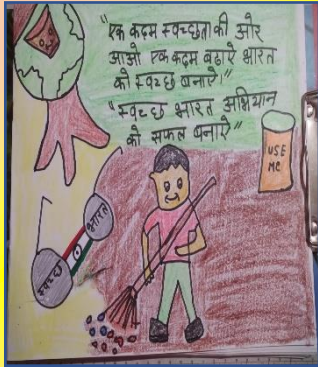 "एक कदम स्वच्छता की ओर
आओ एक कदम बढ़ाए भारत
को स्वच्छ बनाए।"
"स्वच्छ भारत अभियान
को सफल बनाए"
USE
ME
स्वच्छ
भारत